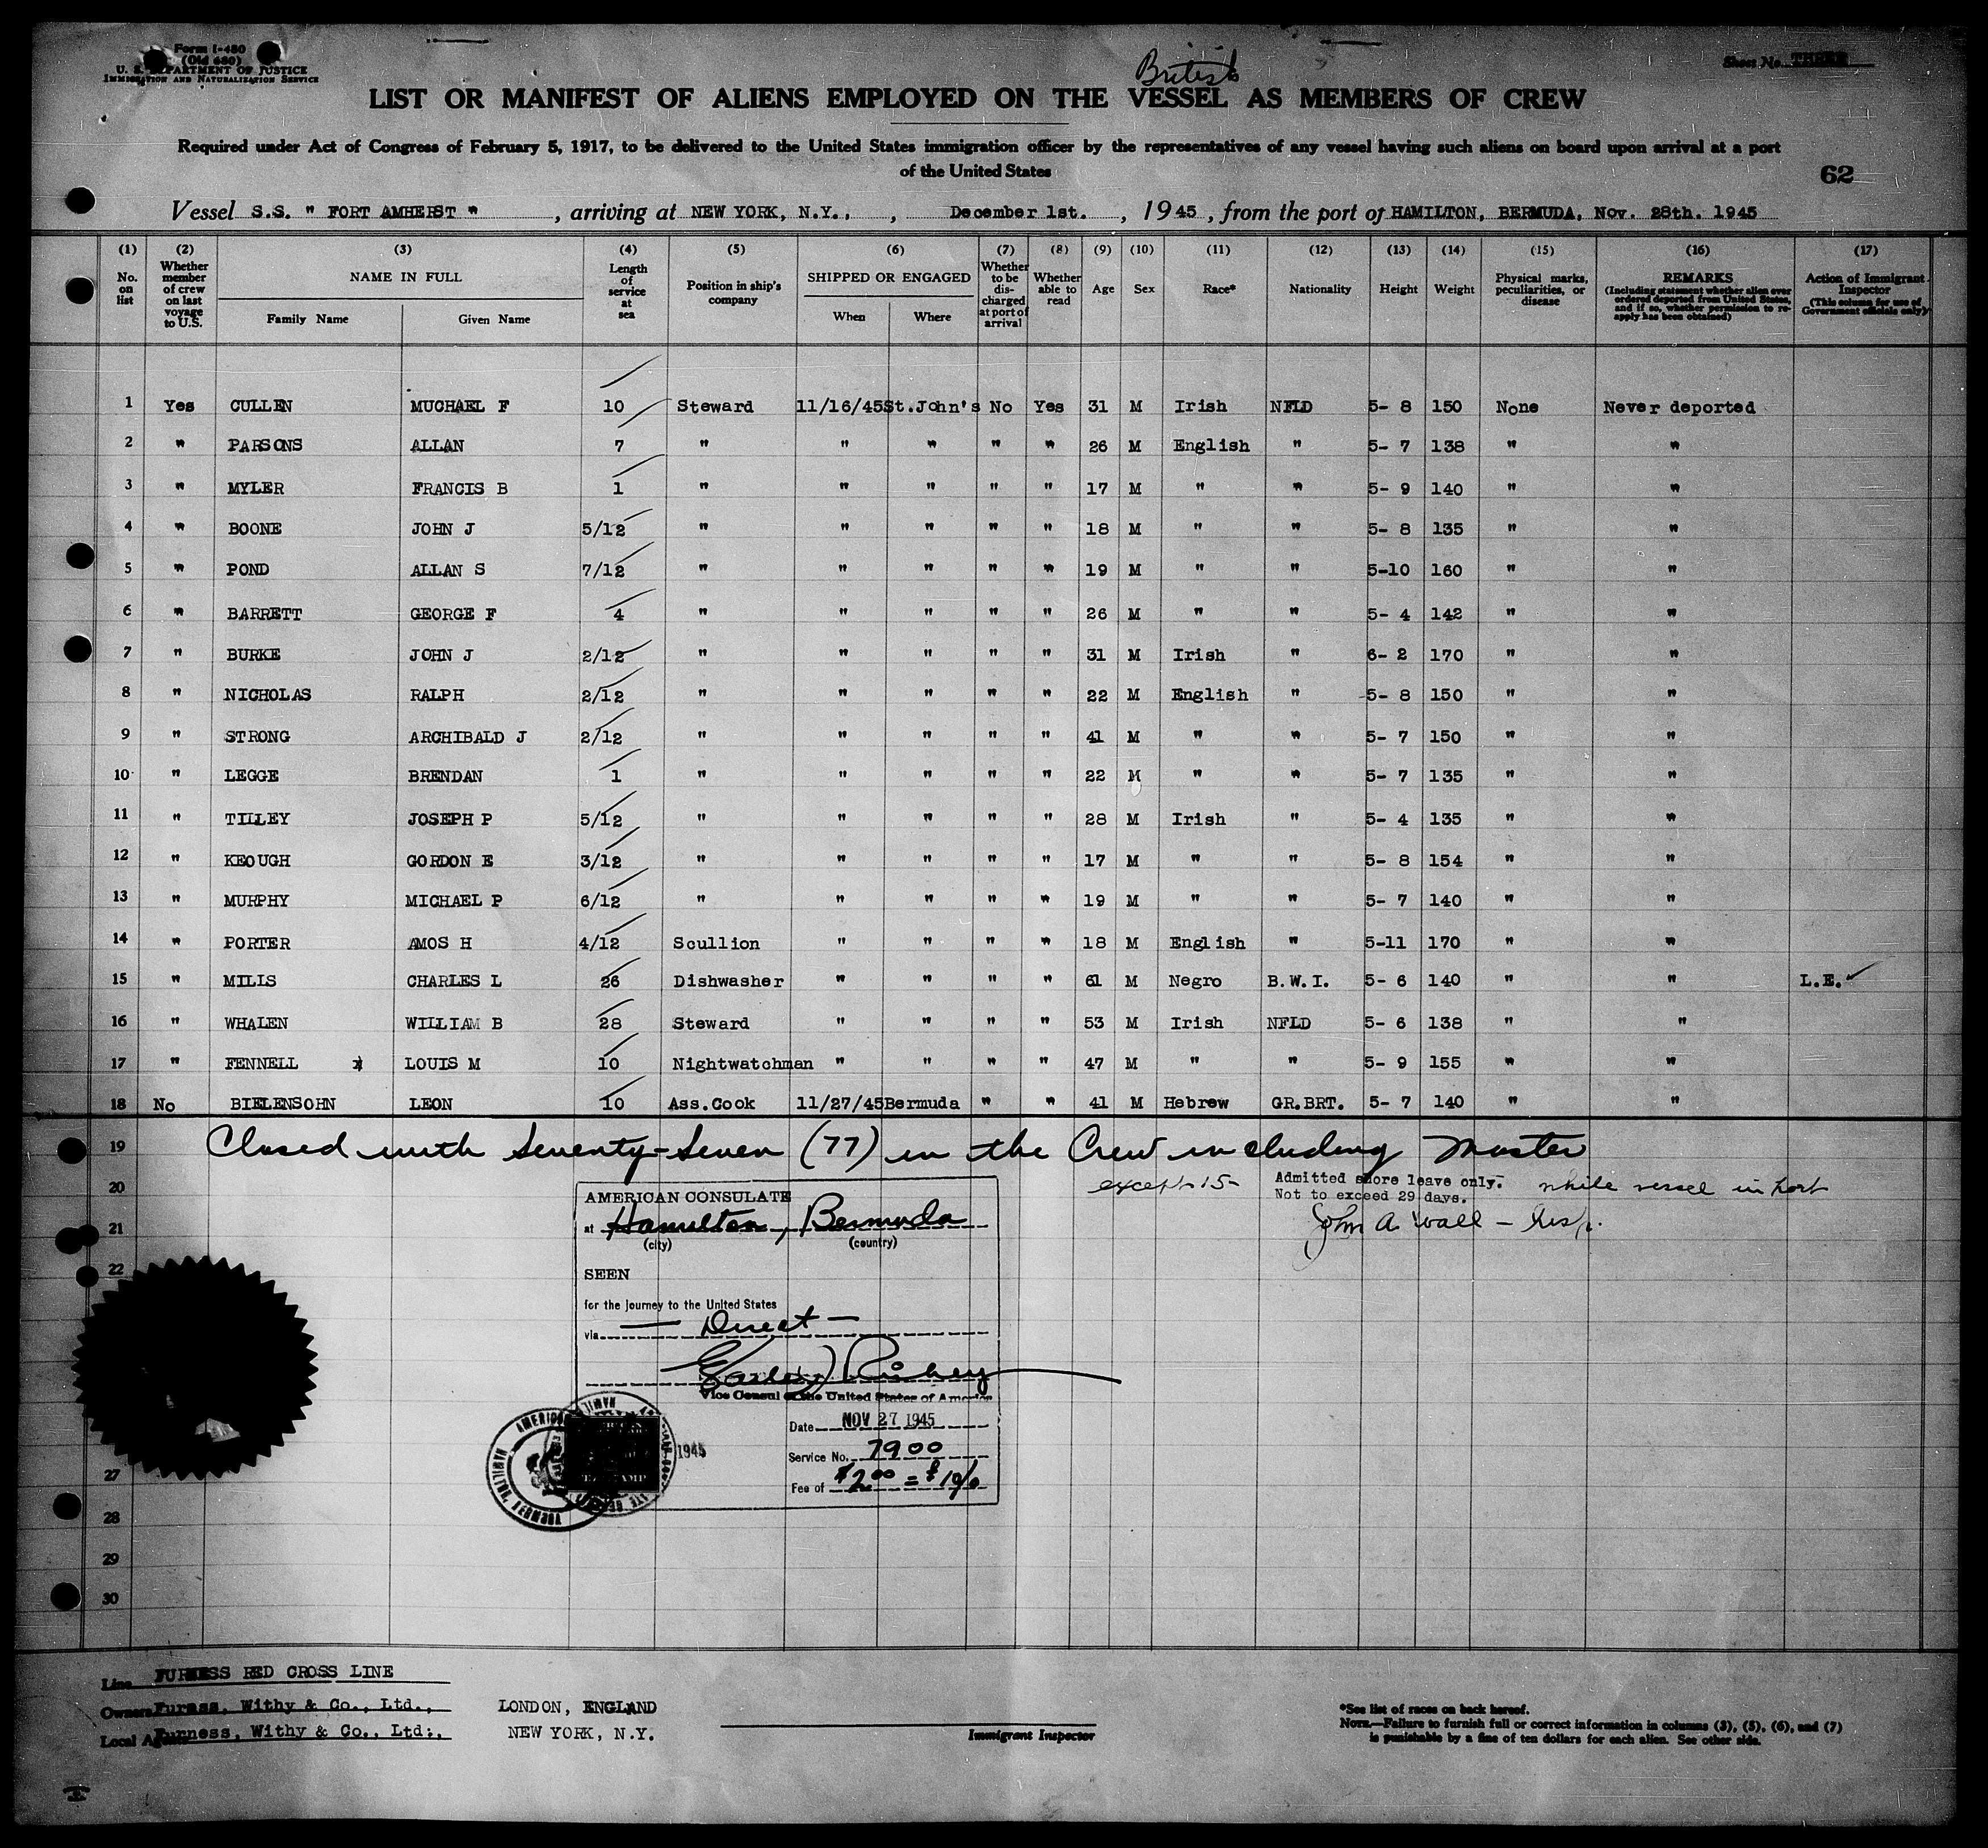 Form I-480
(Old 680)
U. S. DEPARTMENT OF JUSTICE
IMMIGRATION AND NATURALIZATION SERVICE
Sheet No. THREE
British
LIST OR MANIFEST OF ALIENS EMPLOYED ON THE VESSEL AS MEMBERS OF CREW
Required under Act of Congress of February 5, 1917, to be delivered to the United States immigration officer by the representatives of any vessel having such aliens on board upon arrival at a port
of the United States
62
Vessel S.S. " FORT AMHERST " , arriving at NEW YORK, N.Y., , December 1st. , 1945 , from the port of HAMILTON, BERMUDA, Nov. 28th. 1945
(1) No. on list (2) Whether member of crew on last voyage to U.S. (3) NAME IN FULL Family Name Given Name (4) Length of service at sea (5) Position in ship's company (6) SHIPPED OR ENGAGED When Where (7) Whether to be discharged at port of arrival (8) Whether able to read (9) Age (10) Sex (11) Race* (12) Nationality (13) Height (14) Weight (15) Physical marks, peculiarities, or disease (16) REMARKS (Including statement whether alien ever ordered deported from United States, and if so, whether permission to re-apply has been obtained) (17) Action of Immigrant Inspector (This column for use of Government officials only)
1 Yes CULLEN MUCHAEL F 10 Steward 11/16/45 St.John's No Yes 31 M Irish NFLD 5- 8 150 None Never deported
2 " PARSONS ALLAN 7 " " " " " 26 M English " 5- 7 138 " "
3 " MYLER FRANCIS B 1 " " " " " 17 M " " 5- 9 140 " "
4 " BOONE JOHN J 5/12 " " " " " 18 M " " 5- 8 135 " "
5 " POND ALLAN S 7/12 " " " " " 19 M " " 5-10 160 " "
6 " BARRETT GEORGE F 4 " " " " " 26 M " " 5- 4 142 " "
7 " BURKE JOHN J 2/12 " " " " " 31 M Irish " 6- 2 170 " "
8 " NICHOLAS RALPH 2/12 " " " " " 22 M English " 5- 8 150 " "
9 " STRONG ARCHIBALD J 2/12 " " " " " 41 M " " 5- 7 150 " "
10 " LEGGE BRENDAN 1 " " " " " 22 M " " 5- 7 135 " "
11 " TILLEY JOSEPH P 5/12 " " " " " 28 M Irish " 5- 4 135 " "
12 " KEOUGH GORDON E 3/12 " " " " " 17 M " " 5- 8 154 " "
13 " MURPHY MICHAEL P 6/12 " " " " " 19 M " " 5- 7 140 " "
14 " PORTER AMOS H 4/12 Scullion " " " " 18 M English " 5-11 170 " "
15 " MILLS CHARLES L 26 Dishwasher " " " " 61 M Negro B.W.I. 5- 6 140 " " L.E.
16 " WHALEN WILLIAM B 28 Steward " " " " 53 M Irish NFLD 5- 6 138 " "
17 " FENNELL LOUIS M 10 Nightwatchman " " " " 47 M " " 5- 9 155 " "
18 No BIELENSOHN LEON 10 Ass.Cook 11/27/45 Bermuda " " 41 M Hebrew GR.BRT. 5- 7 140 " "
19 Closed with Seventy-Seven (77) in the Crew including Master
20
except 15- Admitted shore leave only. while vessel in port
Not to exceed 29 days.
John A Wall - Insp.
21
22
AMERICAN CONSULATE
at Hamilton, Bermuda
(city) (country)
SEEN
for the journey to the United States
via - Direct -
Vice Consul of the United States of America
Date NOV 27 1945
Service No. 7900
Fee of $2.00 = £ 10/0
1945
27
28
29
30
Line FURNESS RED CROSS LINE
Owners Furness, Withy & Co., Ltd., LONDON, ENGLAND
Local Agents Furness, Withy & Co., Ltd., NEW YORK, N.Y.
Immigrant Inspector
*See list of races on back hereof.
NOTE.—Failure to furnish full or correct information in columns (3), (5), (6), and (7)
is punishable by a fine of ten dollars for each alien. See other side.